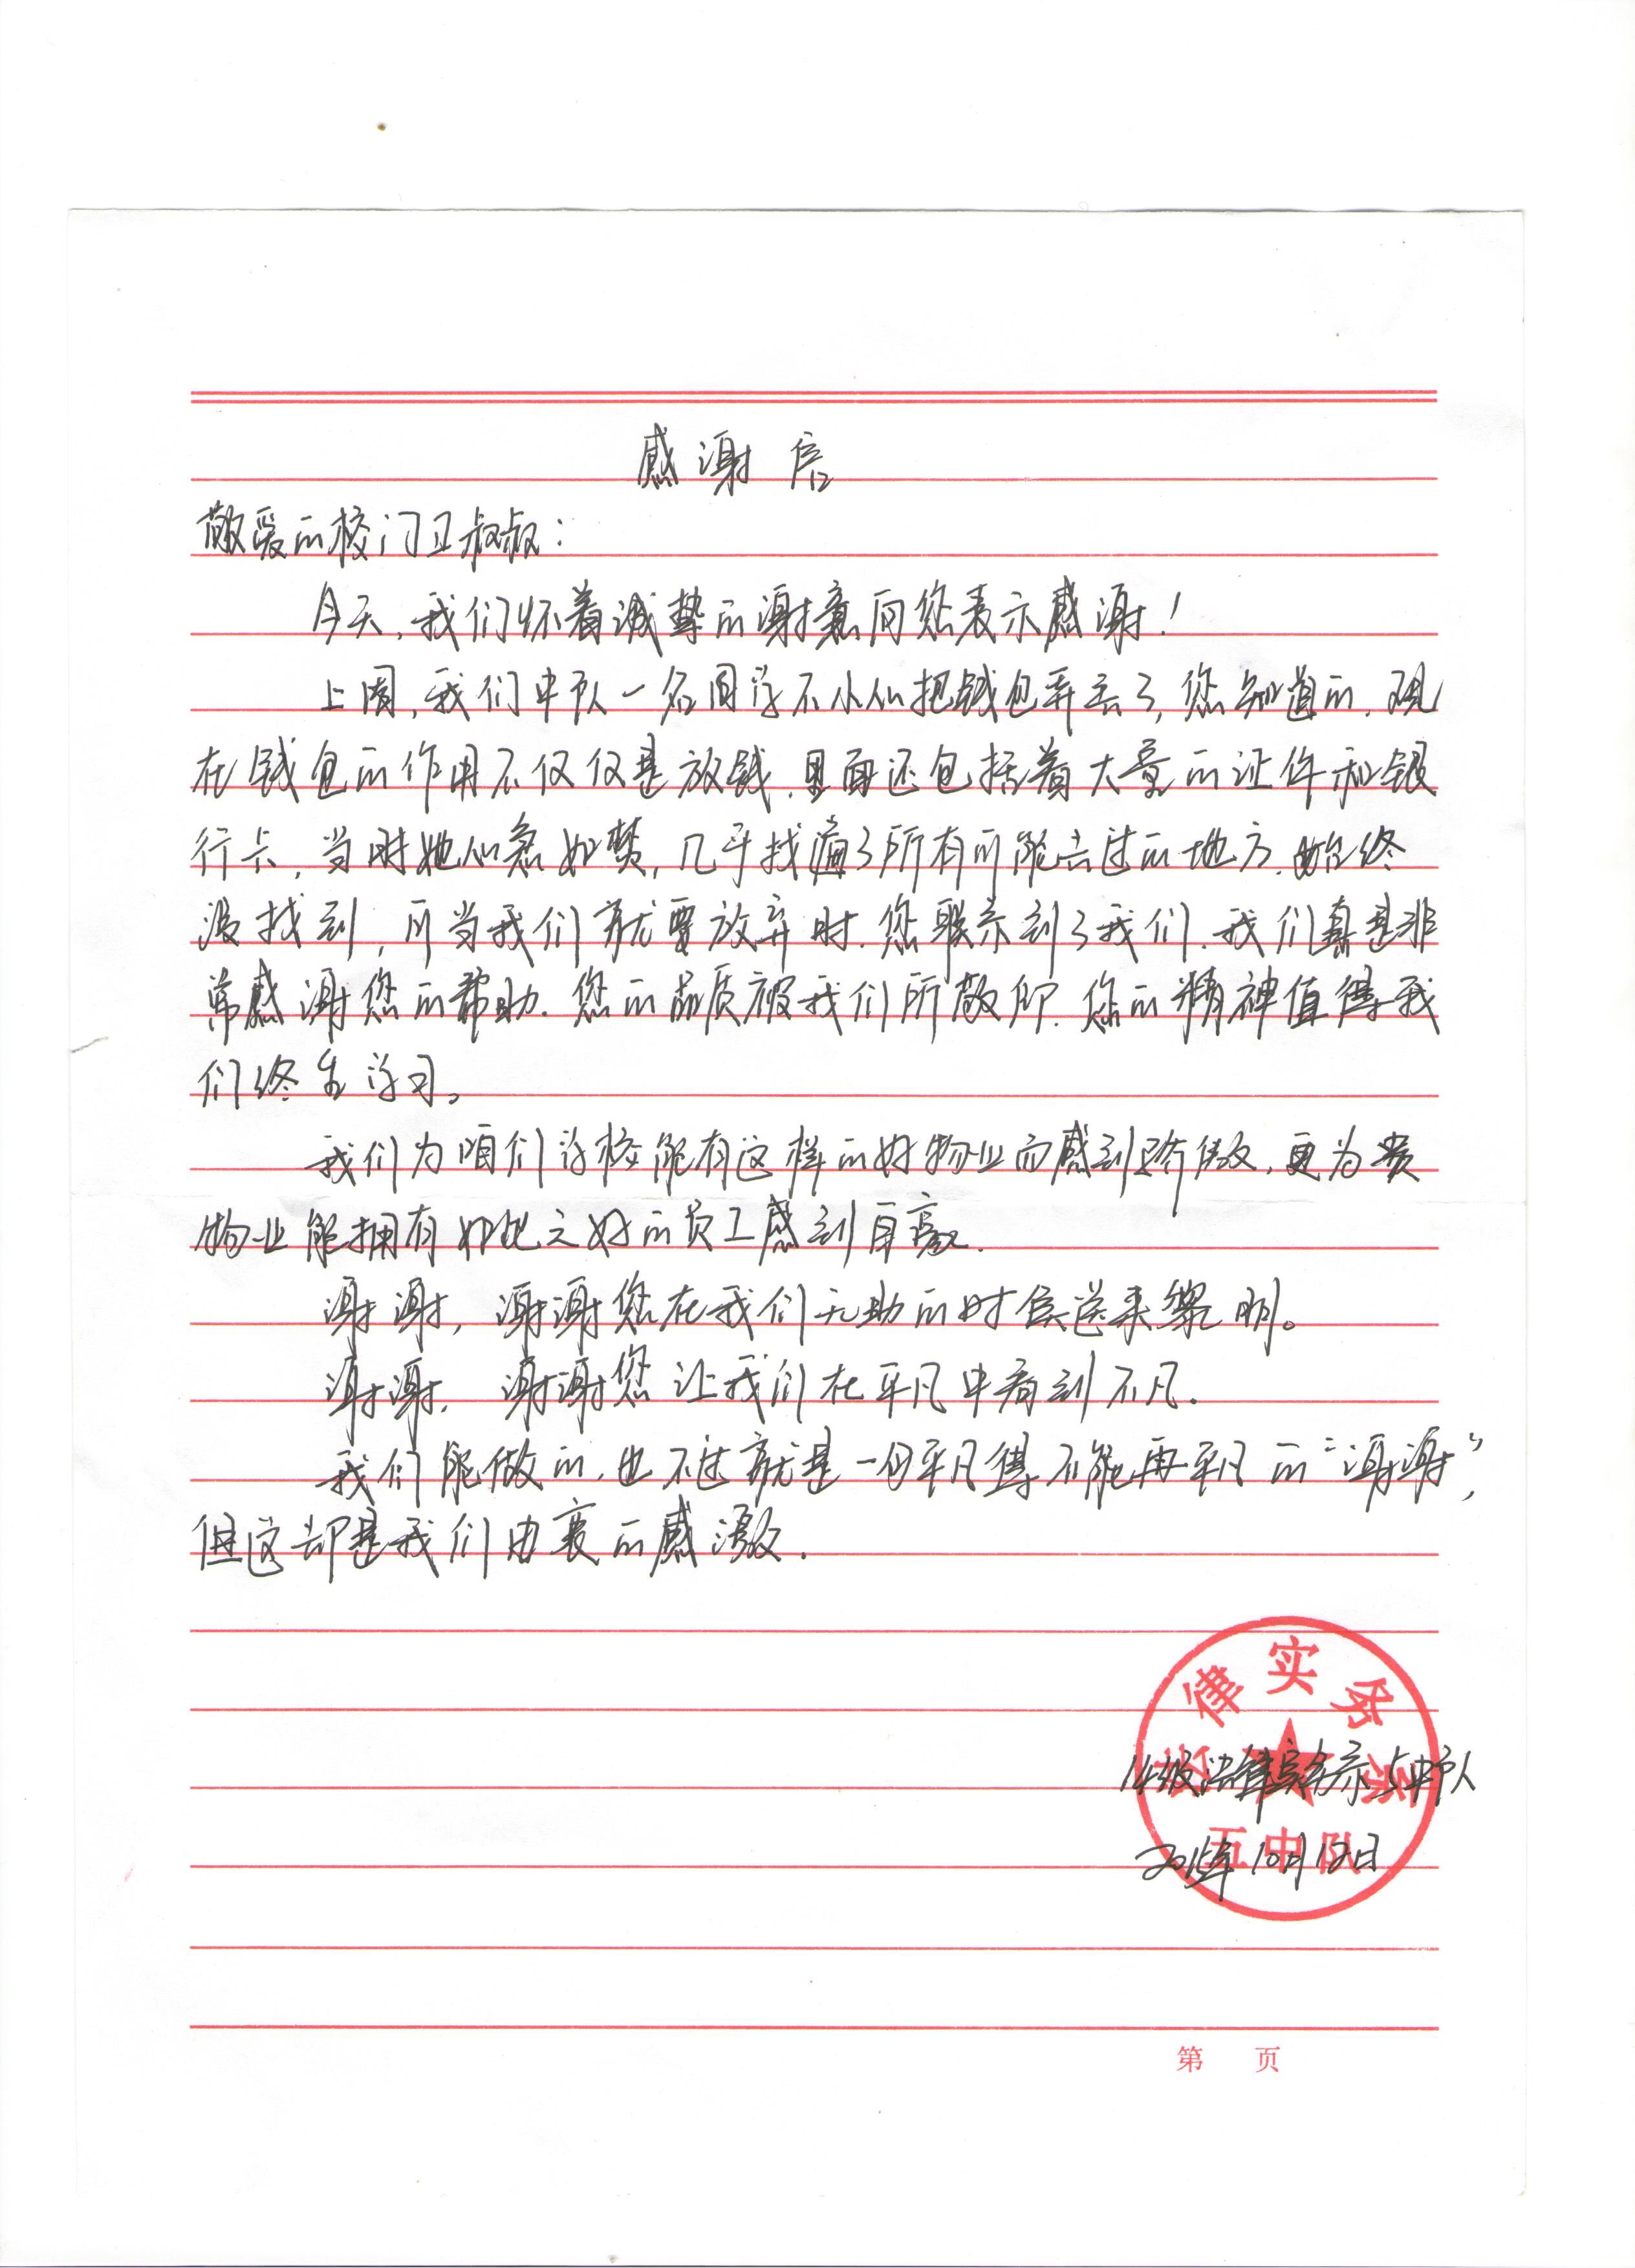 感谢信
敬爱的校门卫叔叔：
今天，我们怀着诚挚的谢意向您表示感谢！
上周，我们中队一名同学不小心把钱包弄丢了，您知道的，现
在钱包的作用不仅仅是放钱，里面还包括着大量的证件和银
行卡，当时她心急如焚，几乎找遍了所有可能去过的地方，始终
没找到，可当我们就要放弃时，您联系到了我们，我们真是非
常感谢您的帮助，您的品质被我们所敬仰，您的精神值得我
们终生学习。
我们为咱们学校能有这样的好物业而感到骄傲，更为贵
物业能拥有如此之好的员工感到自豪。
谢谢，谢谢您在我们无助的时候送来黎明。
谢谢，谢谢您让我们在平凡中看到不凡。
我们能做的，也不过就是一句平凡得不能再平凡的“谢谢”，
但这却是我们由衷的感激。
法律实务系
14级法律实务系5中队
五中队
2015年10月12日
第 页